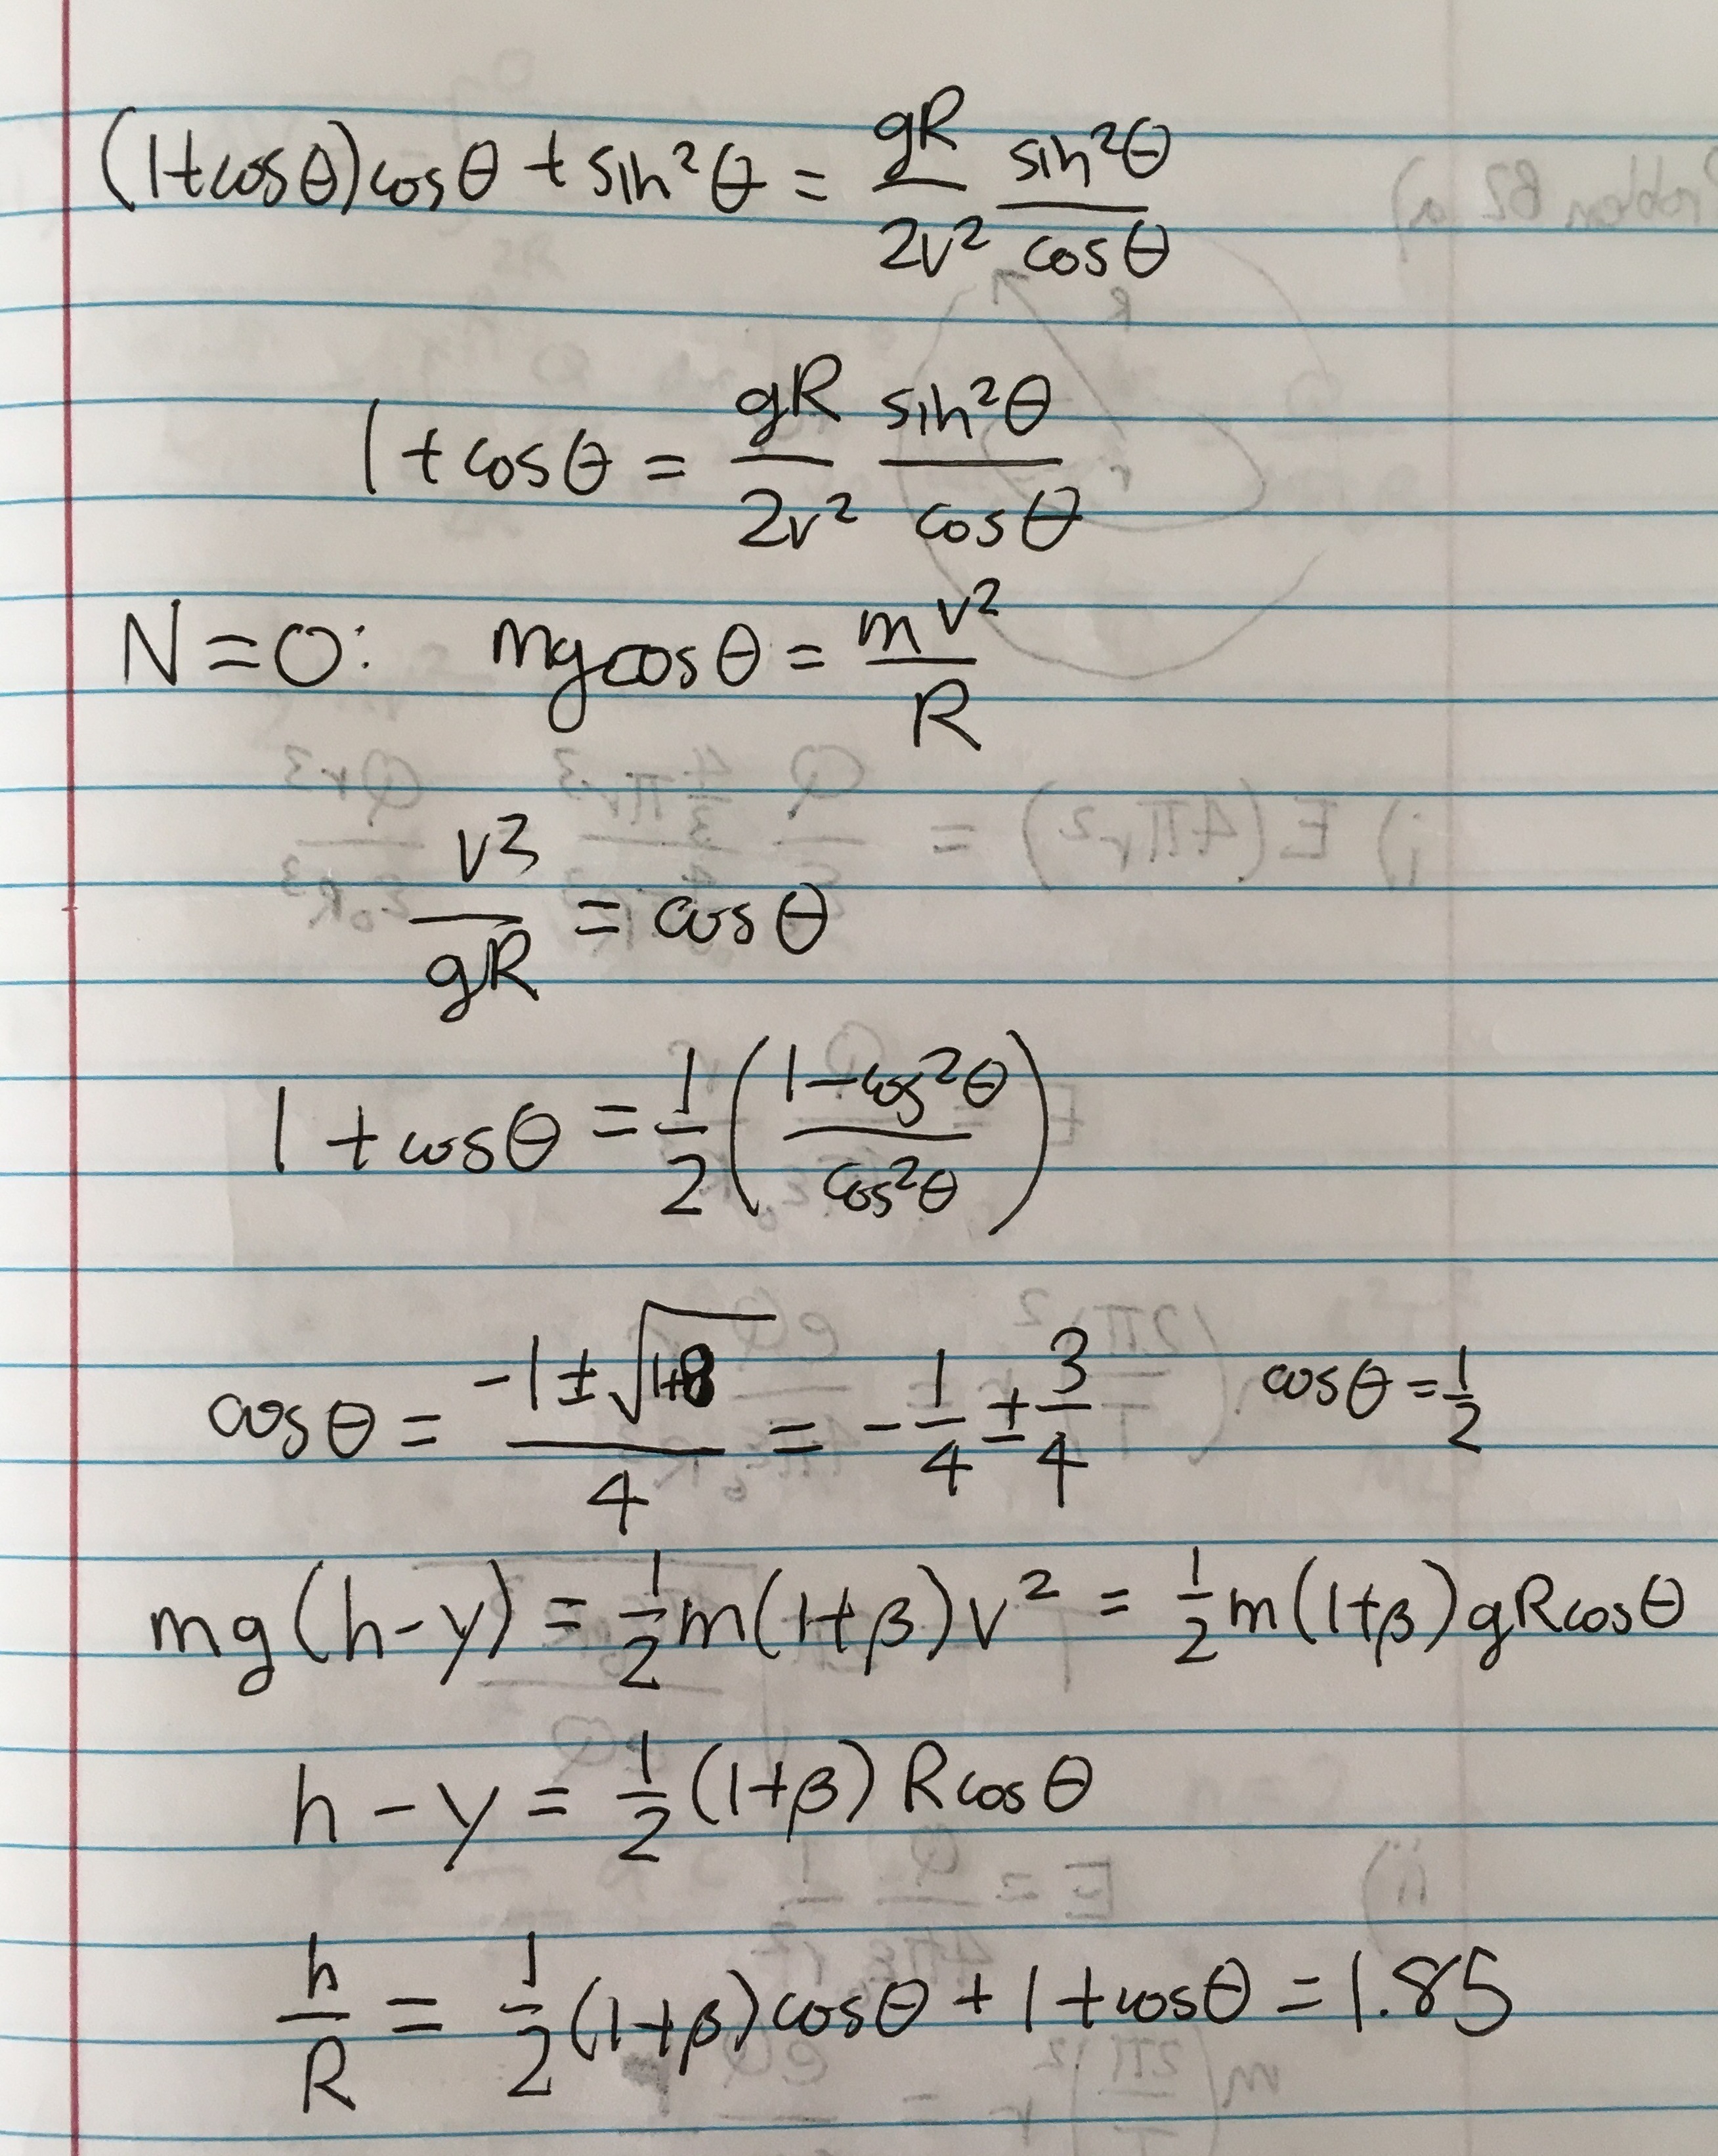 (1+cosθ)cosθ + sin²θ = gR/2v² sin²θ/cosθ
1+cosθ = gR/2v² sin²θ/cosθ
N=0: mgcosθ = mv²/R
v³/gR = cosθ
1+cosθ = 1/2 ((1-cos²θ)/cos²θ)
cosθ = (-1±√(1+8))/4 = -1/4 ± 3/4 cosθ = 1/2
mg(h-y) = 1/2 m(1+β)v² = 1/2 m(1+β)gRcosθ
h-y = 1/2 (1+β) Rcosθ
h/R = 1/2 (1+β)cosθ + 1+cosθ = 1.85